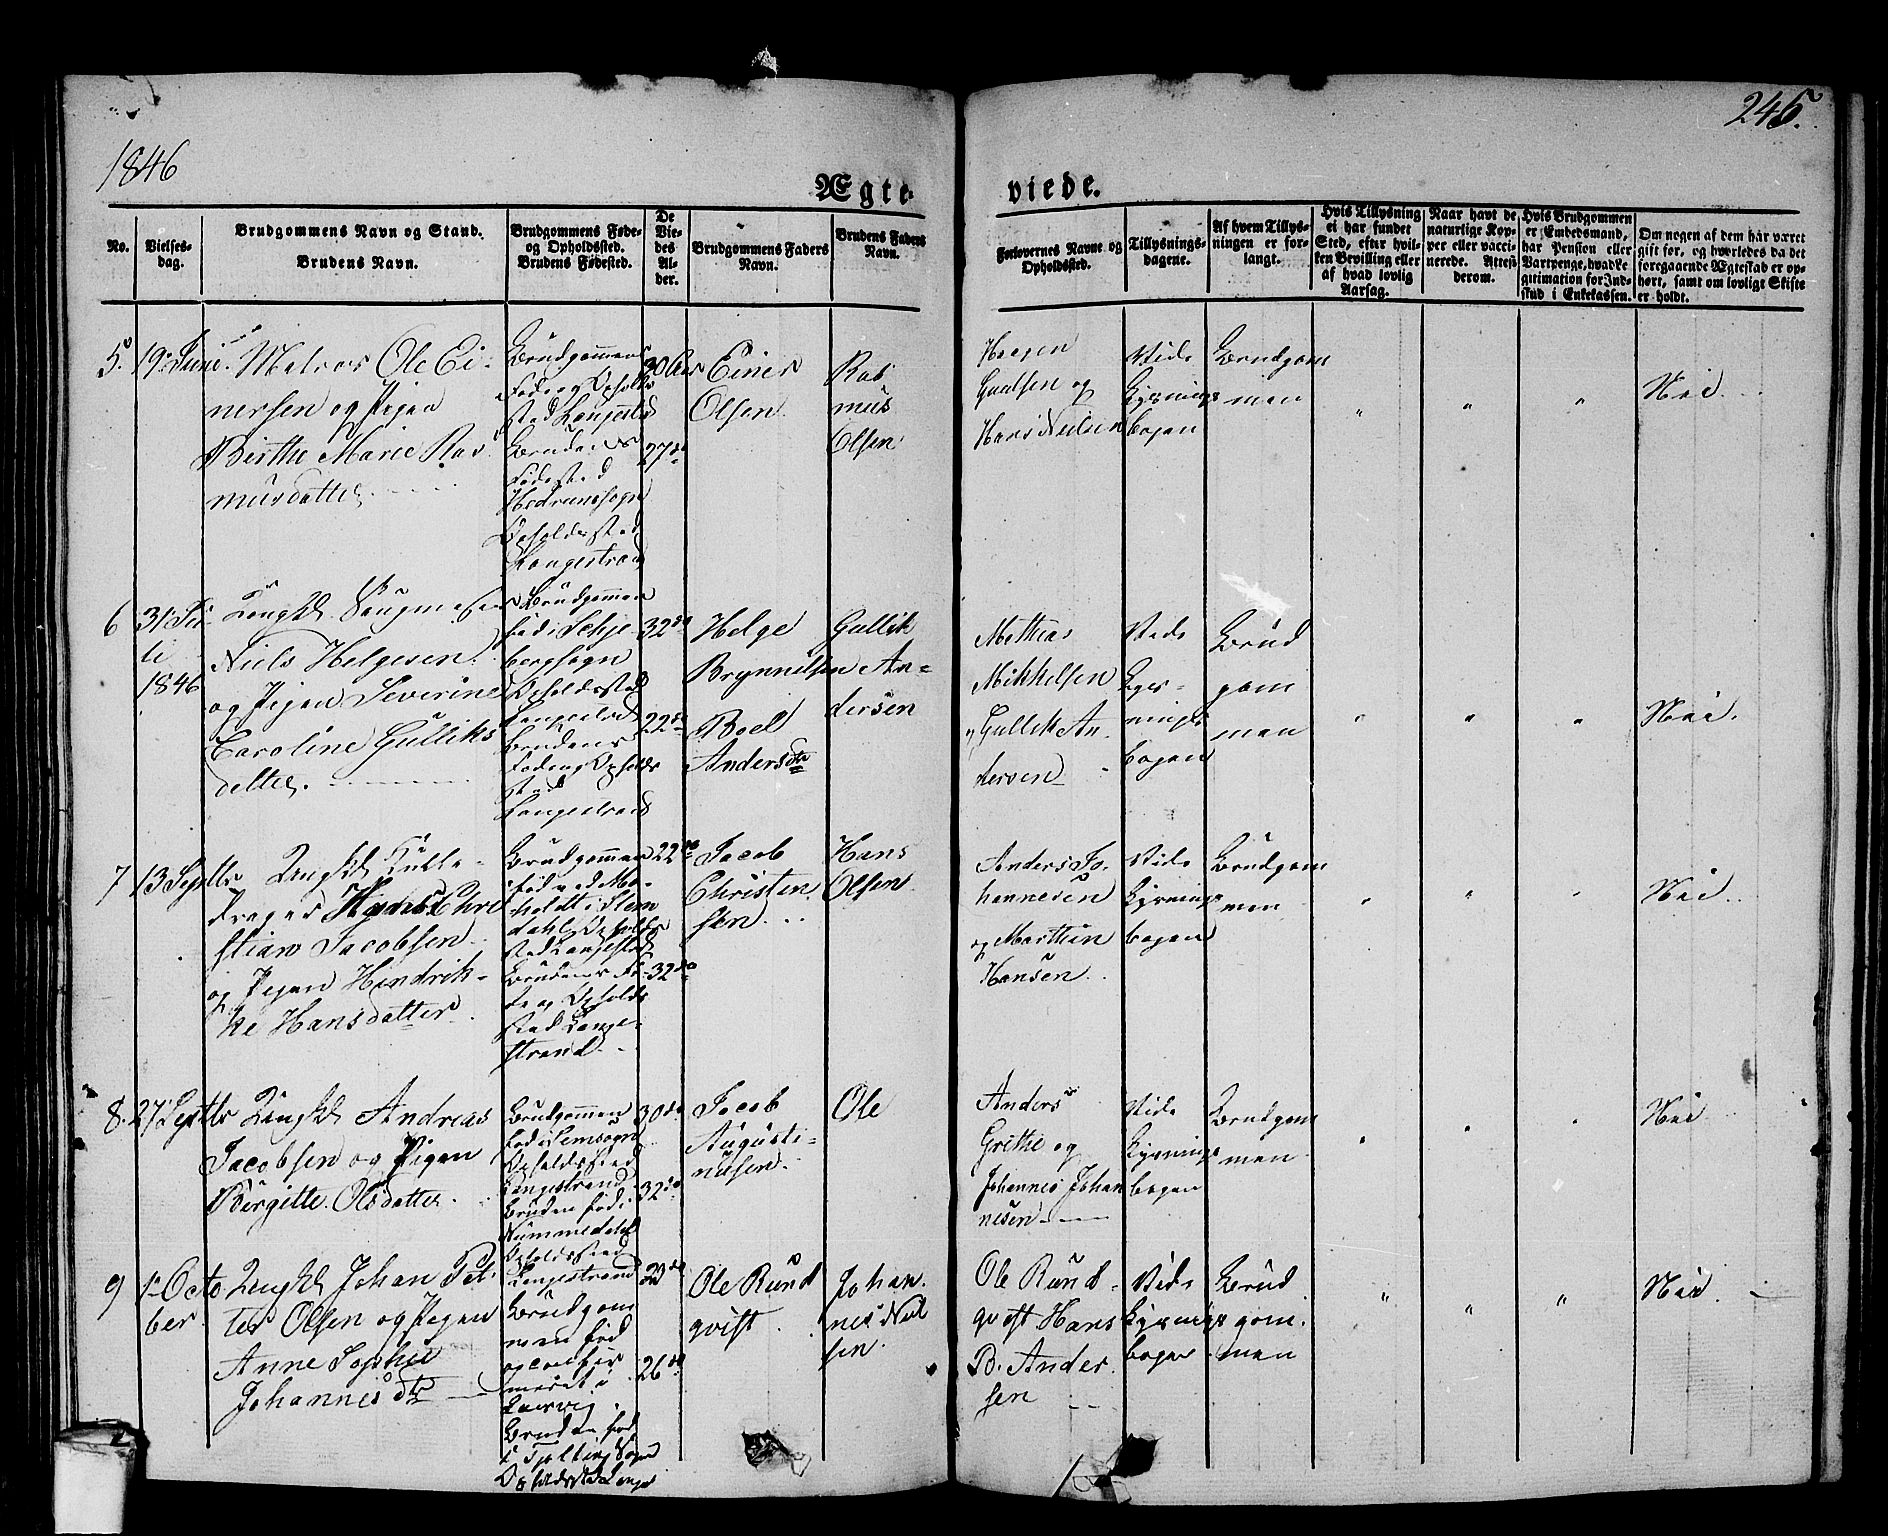 245.
1846
Ægte-
viede.
No.
Vielses-
dag.
Brudgommens Navn og Stand.
Brudens Navn.
Brudgommens Føde-
og Opholdssted.
Brudens Fødested.
De
Vie-
des
Al-
der.
Brudgommens Faders
Navn.
Brudens Faders
Navn.
Forlovernes Navne og
Opholdssted.
Tillysnings-
dagene.
Af hvem Tillys-
ningen er for-
langt.
Hvis Tillysning
ei har fundet
Sted, efter hvil-
ken Bevilling eller
af hvad lovlig
Aarsag.
Naar havt de
naturlige Kop-
per eller vacci-
nerede. Attest
derom.
Hvis Brudgommen
er Embedsmand,
har Pension eller
Vartpenge, hvad Le-
gitimation for Ind-
skud i Enkekassen.
Om nogen af dem har været
gift før, og hvorledes da det
foregaaende Ægteskab er op-
hørt, samt om lovligt Skifte
er holdt.
5. 19 Juni.
Matros Ole Ei-
nersen og Pigen
Birthe Marie Ras
musdatter.
Brudgommens
Føde og Opholds
sted Langestrd
Brudens
Fødested
Hedrum sogn
Opholdssted
Langestrand
30 Aar
27 do
Einer
Olsen
Ras
mus
Olsen
Haagen
Gaalsen og
Hans Nielsen
Vide
Lysnings
bogen
Brudgom
men
"
"
"
Nei.
6
31 Ju-
li
1846
Ungkl Saugmester
Niels Helgesen
og Pigen Severine
Caroline Gulliks
datter.
Brudgommen
fød i Schje
bergsogn
Opholdssted
Langestrd
Brudens
Føde og Opholds
sted
Langestrand
32 do
22 do
Helge
Brynnilsen
Boel
Anders dtr
Gullik
An-
dersen
Mathias
Mikkelsen
" Gullik An
dersen
Vide
Lys-
nings
bogen
Brud
gom
men
"
"
"
Nei.
7
13 Septbr
Ungkl
drager Chri
stian Jacobsen
og Pigen Hendrik-
ke Hansdatter
Brudgommen
fød
dahl Opholds
sted Langestrd
Brudens Fø-
de og Opholds
sted Lange-
strand.
22 do
32 do
Jacob
Christen
sen
Hans
Olsen
Anders Jo-
hannesen
og Marthin
Hansen
Vide
Lysnings
bogen
Brudgom
men
"
"
"
Nei
8.
27 Septbr
Ungkl Andreas
Jacobsen og Pigen
Birgitte Olsdatter.
Brudgommen
fød i Semsogn
Opholdssted
Langestrand
Bruden fød i
Nummedahl
Opholdssted
Langestrand
30 do
32 do
Jacob
Augusti-
nusen
Ole
Anders
Grithe og
Johannes Johan
nesen
Vide
Lysnings
bogen
Brudgom
men
"
"
"
Nei
9
1 Octo
ber
Ungkl Johan Pet-
ter Olsen og Pigen
Anne Sophie
Johannes dtr
Brudgom
men fød
og confir
meret i
Laurvig
Bruden fød
i Tjølling Sogn
Opholdssted Langes
23 do
26 do
Ole Rund
qvist
Johan
nes Niel
sen
Ole Rund-
qvist Hans
B. Ander
sen
Vide
Lysnings
bogen
Brud
gom
men
"
"
"
Nei